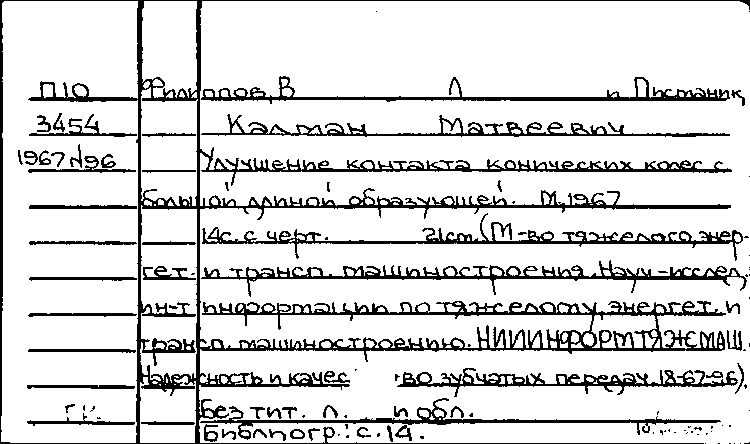 П10 Филиппов, В Л и Писманик,
3454 Калман Матвеевич
1967 №96 Улучшение контакта конических колес с
большой длиной образующей. М, 1967
14с. с черт. 21см. (М-во тяжелого, энер-
гет. и трансп. машиностроения. Науч-исслед.
ин-т информации по тяжелому, энергет. и
трансп. машиностроению. НИИИНФОРМТЯЖМАШ.
Надежность и качес во зубчатых передач. 18-67-96).
Без тит. л. и обл.
Библиогр.: с. 14.